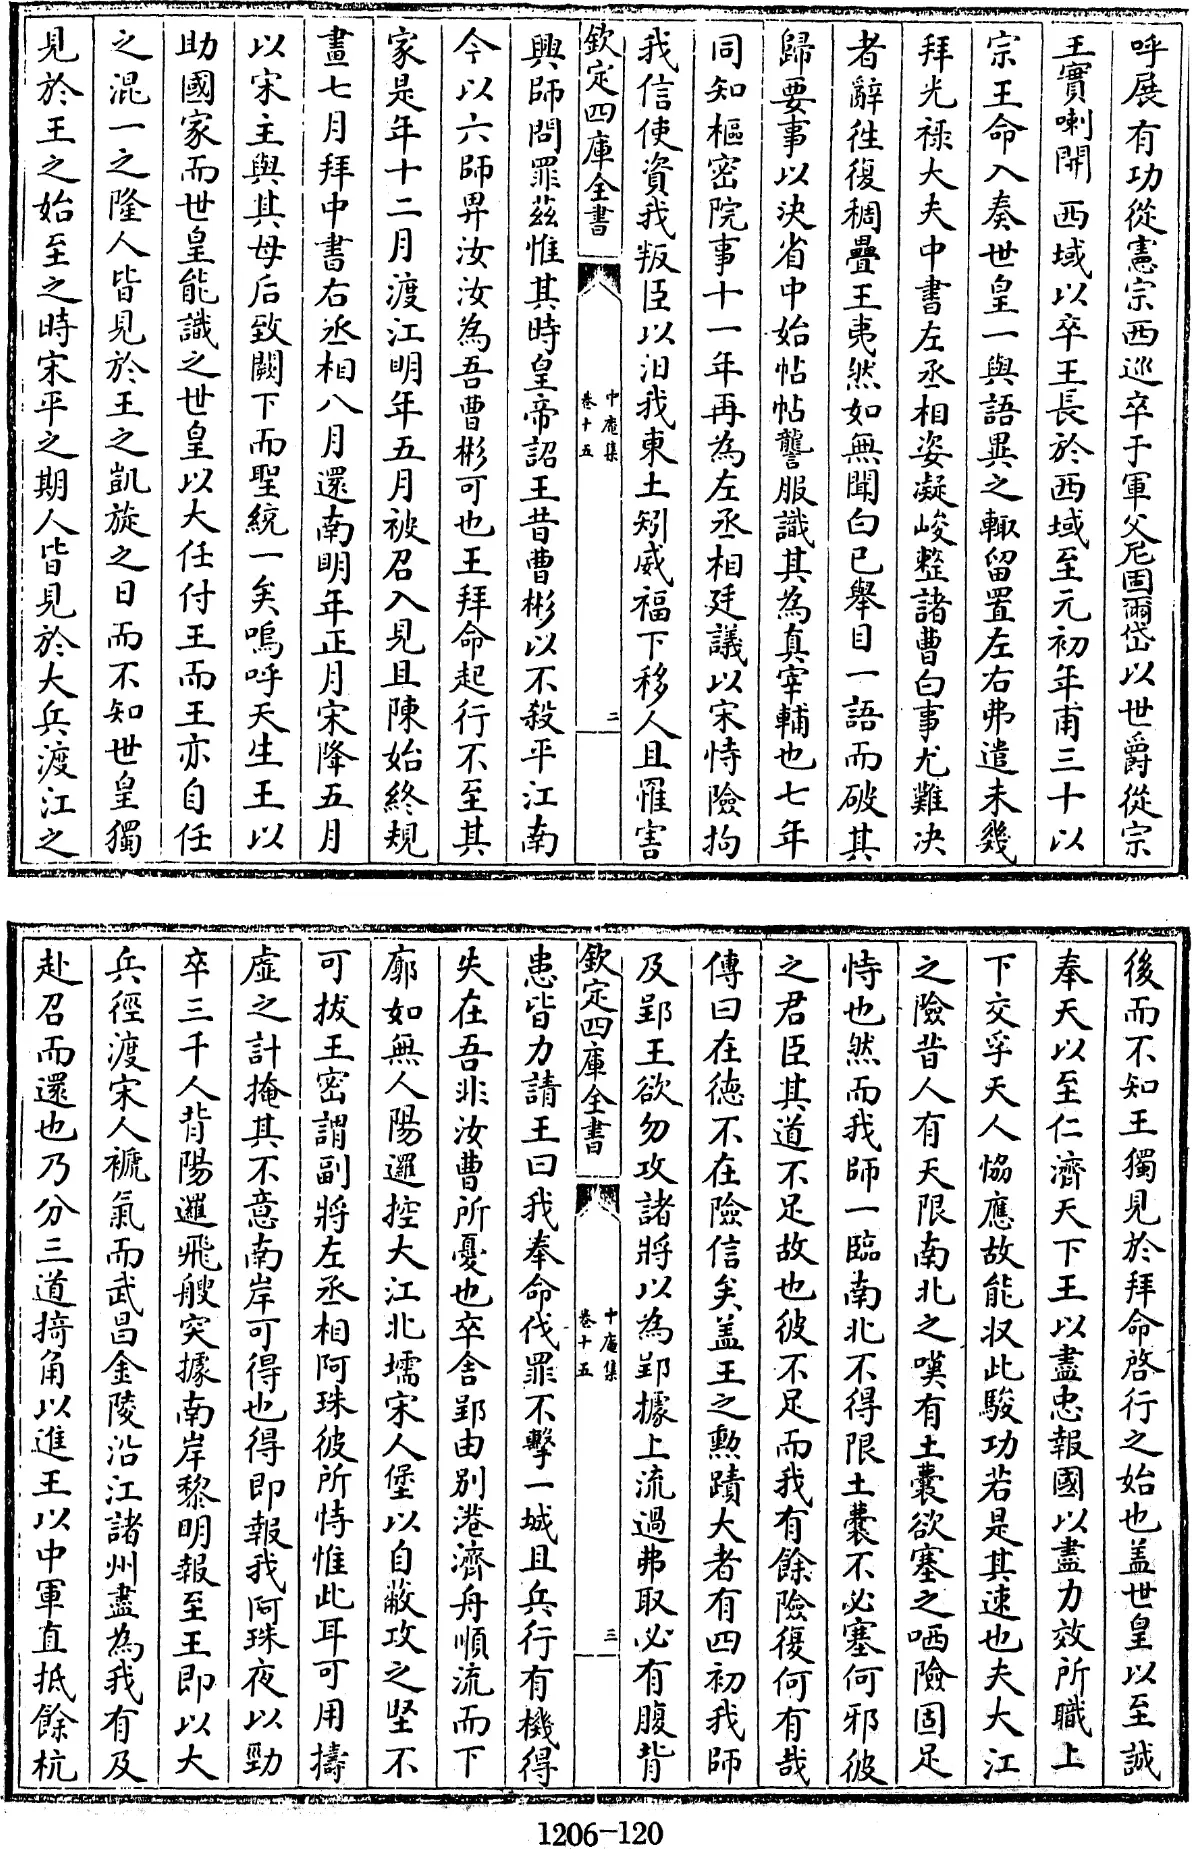 呼展有功從憲宗西巡卒于軍父尼固爾岱以世爵從宗
王實喇開西域以卒王長於西域至元初年甫三十以
宗王命入奏世皇一與語異之輙留置左右弗遣未幾
拜光祿大夫中書左丞相姿凝峻整諸曹白事尤難决
者辭徃復稠疊王夷然如無聞白已舉目一語而破其
歸要事以決省中始帖帖讋服識其為真宰輔也七年
同知樞密院事十一年再為左丞相廷議以宋恃險拘
我信使資我叛臣以汨我東土矧威福下移人且罹害
欽定四庫全書
中庵集
卷十五
二
興師問罪兹惟其時皇帝詔王昔曹彬以不殺平江南
今以六師畀汝汝為吾曹彬可也王拜命起行不至其
家是年十二月渡江明年五月被召入見且陳始終規
畫七月拜中書右丞相八月還南明年正月宋降五月
以宋主與其母后致闕下而聖統一矣嗚呼天生王以
助國家而世皇能識之世皇以大任付王而王亦自任
之混一之隆人皆見於王之凱旋之日而不知世皇獨
見於王之始至之時宋平之期人皆見於大兵渡江之
後而不知王獨見於拜命啓行之始也盖世皇以至誠
奉天以至仁濟天下王以盡忠報國以盡力效所職上
下交孚天人恊應故能収此駿功若是其速也夫大江
之險昔人有天限南北之嘆有土囊欲塞之哂險固足
恃也然而我師一臨南北不得限土囊不必塞何邪彼
之君臣其道不足故也彼不足而我有餘險復何有哉
傳曰在德不在險信矣盖王之勲蹟大者有四初我師
及郢王欲勿攻諸將以為郢據上流過弗取必有腹背
欽定四庫全書
中庵集
卷十五
三
患皆力請王曰我奉命伐罪不擊一城且兵行有機得
失在吾非汝曹所憂也卒舍郢由别港濟舟順流而下
廓如無人陽邏控大江北壖宋人堡以自蔽攻之堅不
可拔王密謂副將左丞相阿珠彼所恃惟此耳可用擣
虚之計掩其不意南岸可得也得即報我阿珠夜以勁
卒三千人背陽邏飛艘突據南岸黎明報至王即以大
兵徑渡宋人褫氣而武昌金陵沿江諸州盡為我有及
赴召而還也乃分三道掎角以進王以中軍直抵餘杭
1206-120